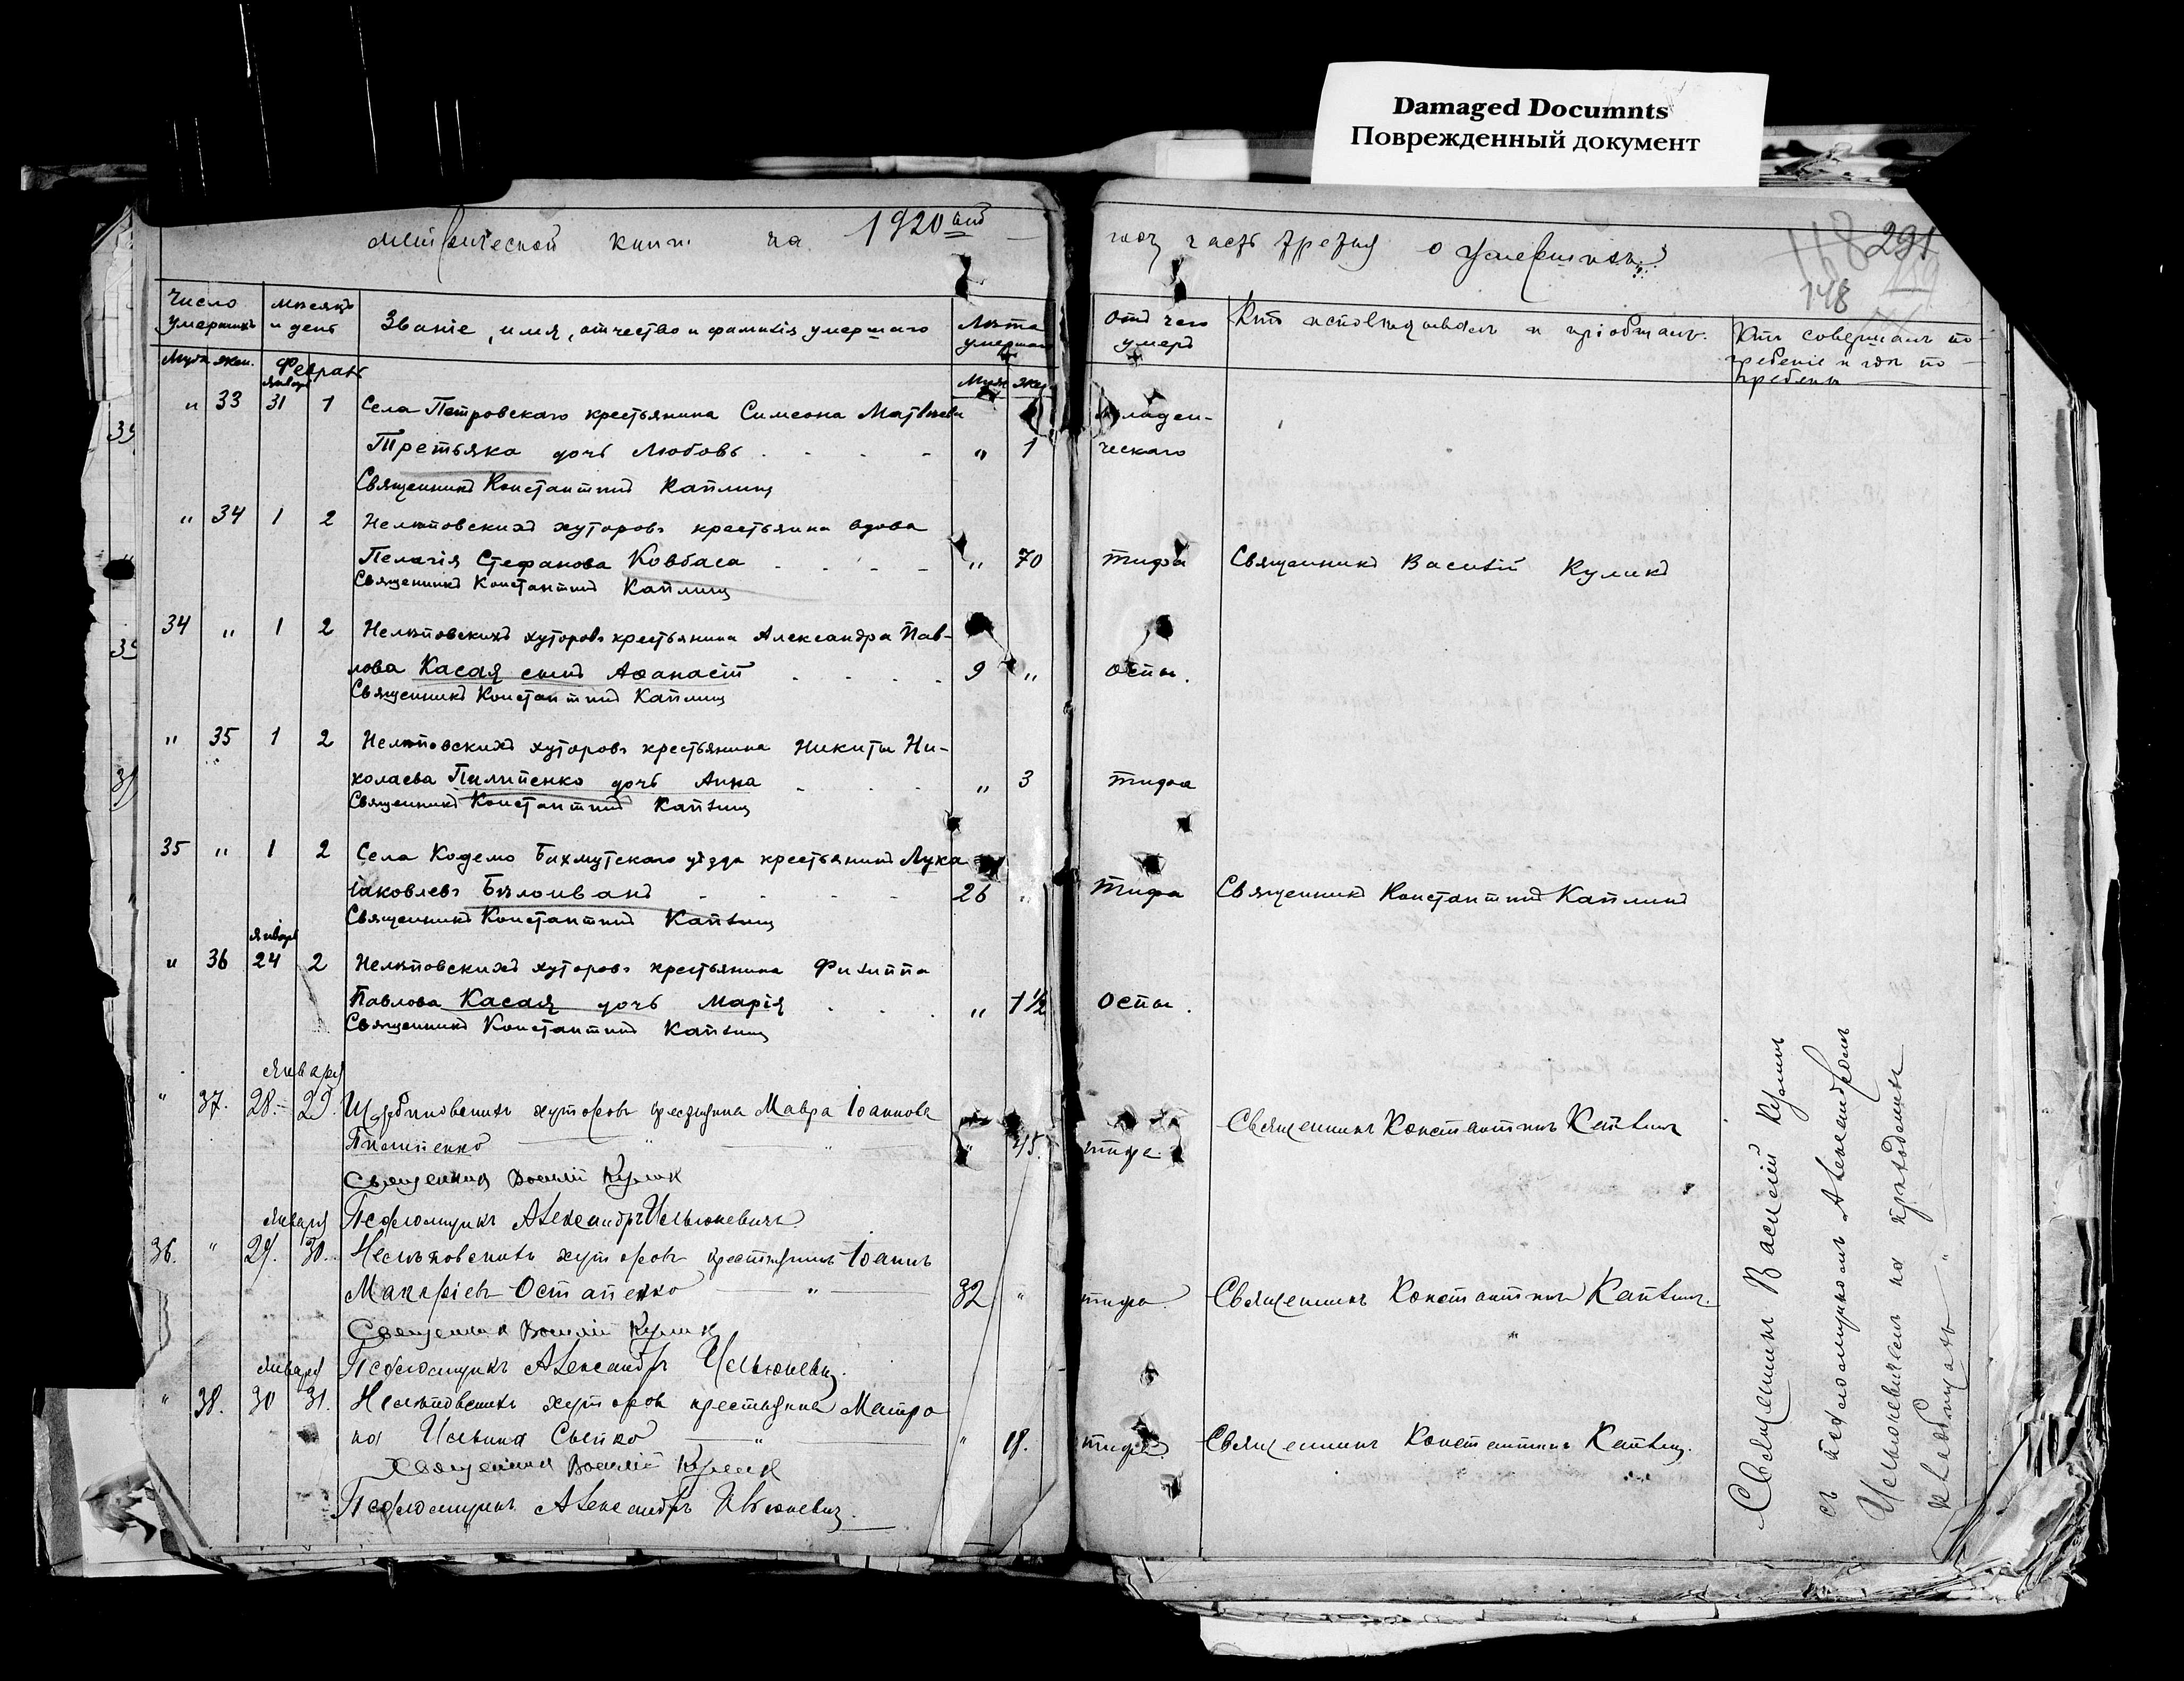 Damaged Documnts
Поврежденный документ
метрической книги на 1920 год
часть третья о умершихъ
291
148
Число умершихъ
мѣсяцъ и день
Званіе, имя, отчество и фамилія умершаго
Лѣта умершаго
Отъ чего умеръ
Кто исповѣдывалъ и пріобщалъ.
Кто совершалъ по-
гребеніе и гдѣ по-
гребены
Муж. жен.
Январь
Феврал
Муж. жен.
" 33 31 1 Села Петровскаго крестьянина Симеона Матвѣева
Младен-
Третьяка дочь Любовь " 1 ческаго
Священникъ Константинъ Каплинъ
" 34 1 2 Нелѣповскихъ хуторовъ крестьянина вдова
Пелагія Стефанова Ковбаса " 70 тифа Священникъ Василій Куликъ
Священникъ Константинъ Каплинъ
34 " 1 2 Нелѣповскихъ хуторовъ крестьянина Александра Пав-
лова Касая сынъ Аѳанасій 9 " оспы.
Священникъ Константинъ Каплинъ
" 35 1 2 Нелѣповскихъ хуторовъ крестьянина Никиты Ни-
колаева Пилипенко дочь Анна " 3 тифа
Священникъ Константинъ Каплинъ
35 " 1 2 Села Кодемо Бахмутскаго уѣзда крестьянинъ Лука
Іаковлевъ Бѣлоиванъ 26 " Тифа Священникъ Константинъ Каплинъ
Священникъ Константинъ Каплинъ
Январь
" 36 24 2 Нелѣповскихъ хуторовъ крестьянина Филиппа
Павлова Касая дочь Марія " 1 ½ Оспы.
Священникъ Константинъ Каплинъ
Января
" 37. 28. 29. Щербиновскихъ хуторовъ крестьянка Мавра Іоаннова
Священникъ Константинъ Каплинъ
Пилипенко " 45. тифа.
Священник Василій Кулик
Января Псаломщикъ Александръ Ильюкевичъ
36. " 29. 30. Нелѣповскихъ хуторовъ крестьянинъ Іоаннъ
Макаріевъ Остапенко 32 " тифа. Священникъ Константинъ Каплинъ.
Священник Василій Кулик
Января Псаломщикъ Александръ Ильюкевичъ.
" 38. 30 31. Нелѣповскихъ хуторовъ крестьянка Матро
на Ильина " 18. тифа. Священникъ Константинъ Каплинъ.
Священник Василій Кулик
Псаломщикъ Александръ Ильюкевичъ.
Священникъ Василій Куликъ
съ псаломщикомъ Александромъ
Ильюкевичемъ на приходскомъ
кладбищахъ